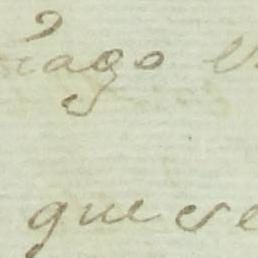 iago
que se